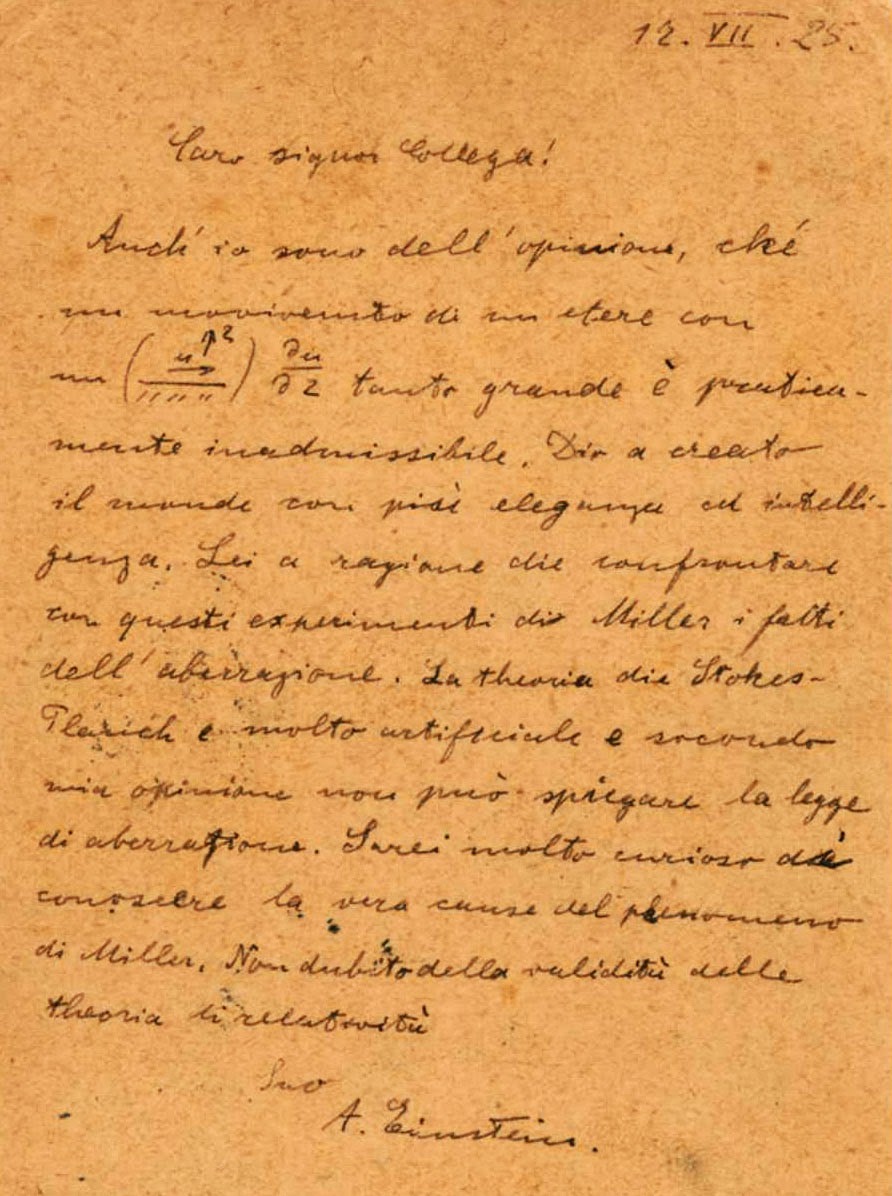 12. VII. 25.
Caro signor Collega!
Anch' io sono dell' opinione, ché
un movivento di un etere con
un (u↑z) ∂u/∂z tanto grande è pratica-
mente inadmissibile. Dio a creato
il monde con più eleganza ed intelli-
genza. Lei a ragione die confrontare
con questi experimenti di Miller i fatti
dell' aberrazione. La theoria die Stokes-
Planck e molto artificiale e secondo
mia opinione non può spiegare la legge
di aberrazione. Sarei molto curioso di
conoscere la vera cause del phenomeno
di Miller. Non dubito della validitù delle
theoria di relativitù
Suo
A. Einstein.